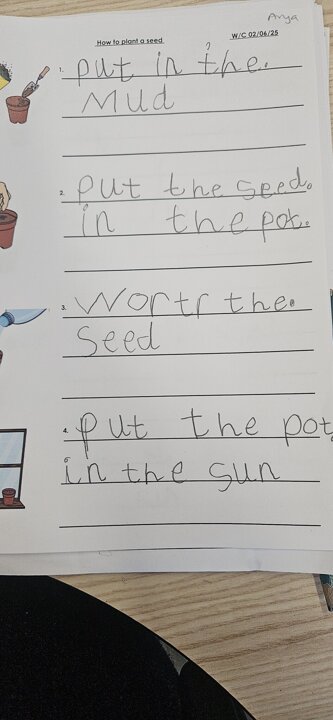 Anya
How to plant a seed
W/C 02/06/25
1. put in the.
Mud
2. Put the seed.
in the pot.
3. Wortr the.
Seed
4. Put the pot
in the sun